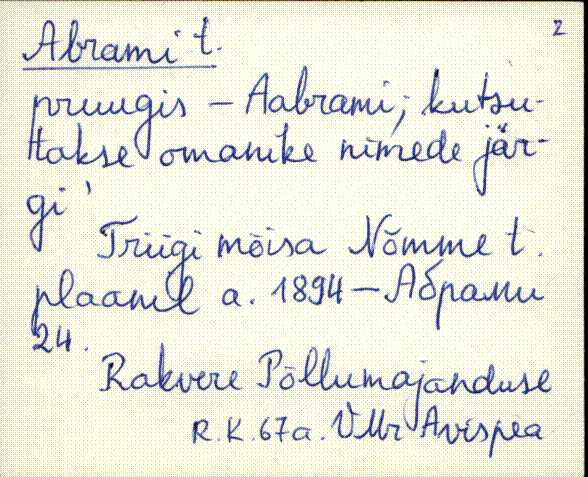 2
Abrami t.
pruugis – Aabrami; kutsu-
takse omanike nimede jär-
gi
Triigi mõisa Nõmme t.
plaanil a. 1894 – Абрами
24.
Rakvere Põllumajanduse
R.K. 67a. VMr Avispea